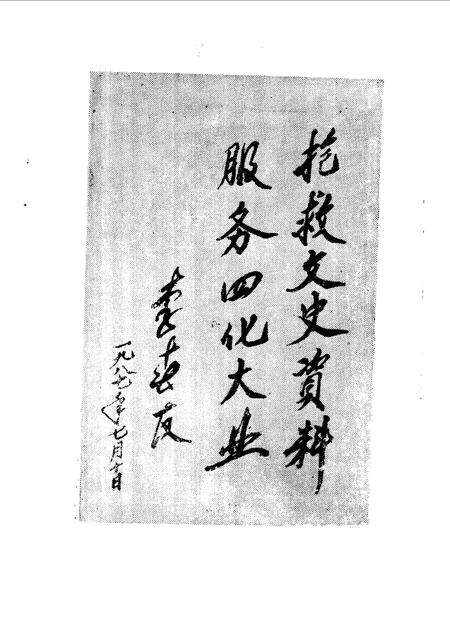 抢救文史資料
服务四化大业
李
一九八七年七月十日